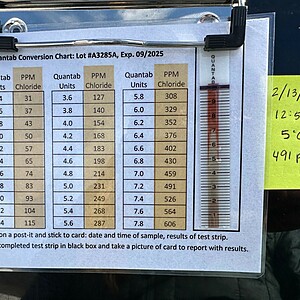 antab Conversion Chart: Lot #A3285A, Exp. 09/2025
ntab Units PPM Chloride Quantab Units PPM Chloride Quantab Units PPM Chloride
4 31 3.6 127 5.8 308
6 37 3.8 140 6.0 329
8 43 4.0 154 6.2 352
0 50 4.2 168 6.4 376
2 57 4.4 183 6.6 402
4 65 4.6 198 6.8 430
6 74 4.8 214 7.0 459
8 83 5.0 231 7.2 491
0 93 5.2 249 7.4 526
2 104 5.4 268 7.6 564
4 115 5.6 287 7.8 606
on a post-it and stick to card: date and time of sample, results of test strip.
completed test strip in black box and take a picture of card to report with results.
QUANTAB
2/13/
12:5
5°
491 P